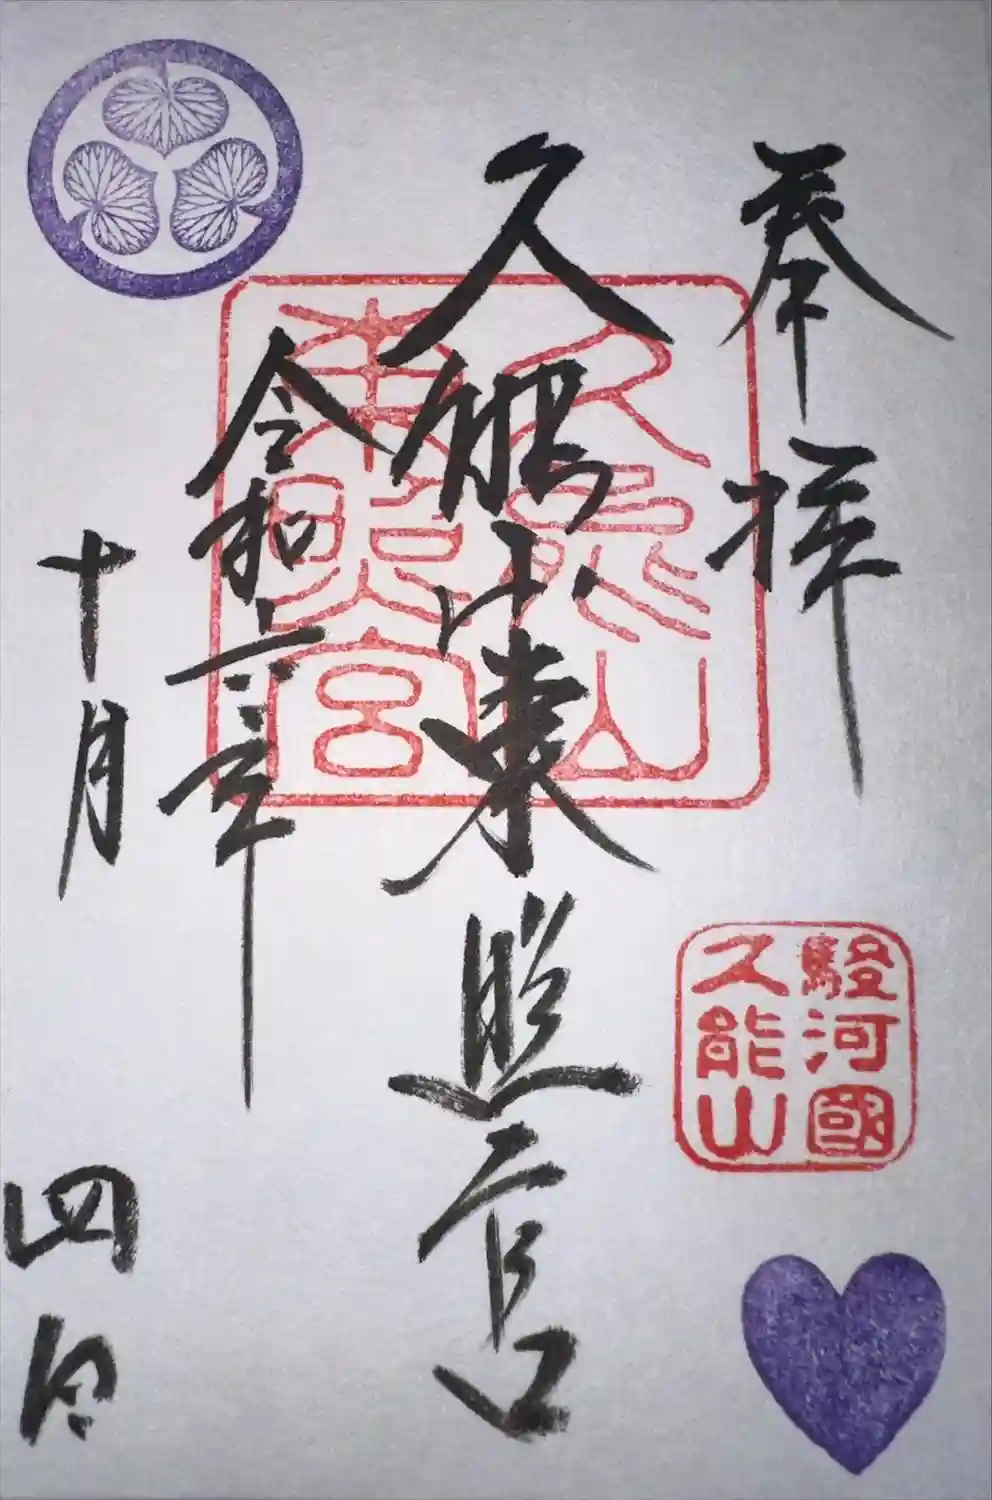 奉拝
駿河國
久能山
久能山東照宮
久能山
東照宮
令和六年
十月四日